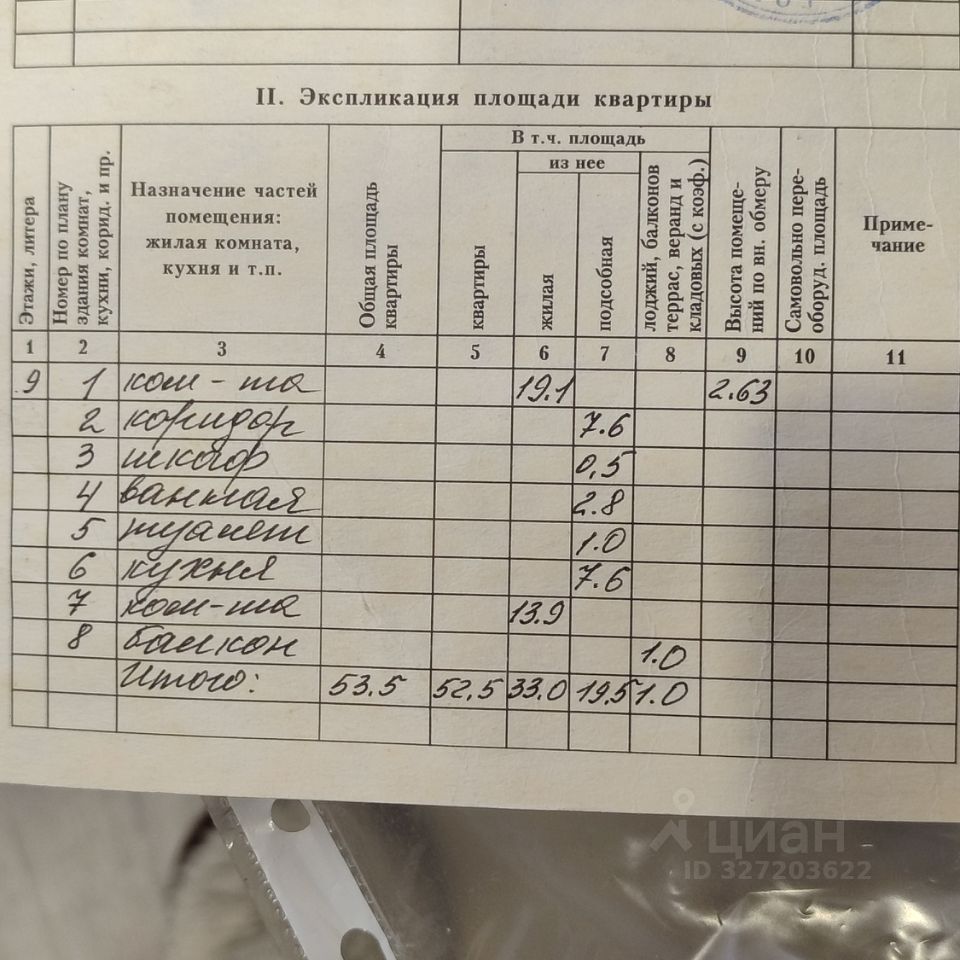 II. Экспликация площади квартиры
Этажи, литера
Номер по плану
здания комнат,
кухни, корид. и пр.
Назначение частей
помещения:
жилая комната,
кухня и т.п.
Общая площадь
квартиры
В т.ч. площадь
квартиры
из нее
жилая
подсобная
лоджий, балконов
террас, веранд и
кладовых (с коэф.)
Высота помеще-
ний по вн. обмеру
Самовольно пере-
оборуд. площадь
Приме-
чание
1 2 3 4 5 6 7 8 9 10 11
9 1 ком-та 19.1 2.63
2 коридор 7.6
3 шкаф 0,5
4 ванная 2.8
5 туалет 1.0
6 кухня 7.6
7 ком-та 13.9
8 балкон 1.0
Итого: 53.5 52.5 33.0 19.5 1.0
циан
ID 327203622